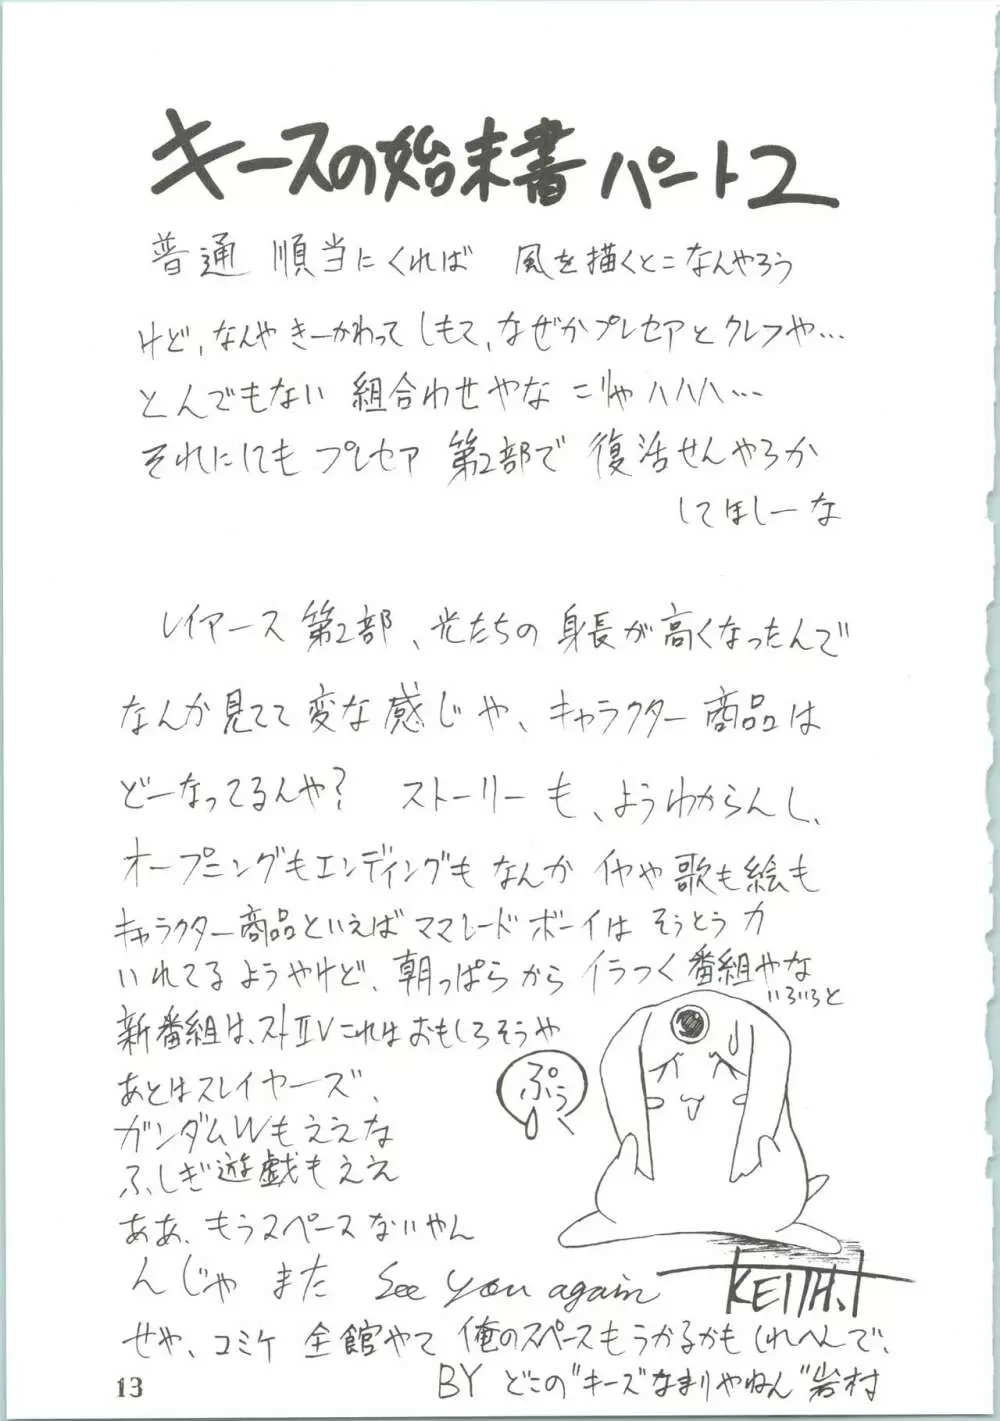 キースの始末書 パート2
普通 順当にくれば 風を描くとこなんやろう
けど、なんや きーかわって しもて、なぜかプレセアとクレフや…
とんでもない 組合わせやな こりゃハハハ…
それにしてもプレセア 第2部で 復活せんやろか
してほしーな
レイアース 第2部、光たちの 身長が 高くなったんで
なんか見てて 変な感じや、キャラクター商品は
どーなってるんや? ストーリーも、ようわからんし、
オープニングもエンディングも なんか イヤや 歌も絵も
キャラクター商品といえば ママレードボーイは そうとう力
いれてる ようやけど、朝っぱらから イラつく番組やな
いろいろと
新番組は、ストⅡV これは おもしろそうや
あとはスレイヤーズ、
ガンダムWもええな
ふしぎ遊戯もええ
ああ、もうスペースないやん
んじゃ また See you again
ぷぅ
KEITH.I
せや、コミケ 全館やて 俺のスペースも うかるかも しれへんで、
BY どこの"キーズ"なまりやねん"岩村
13